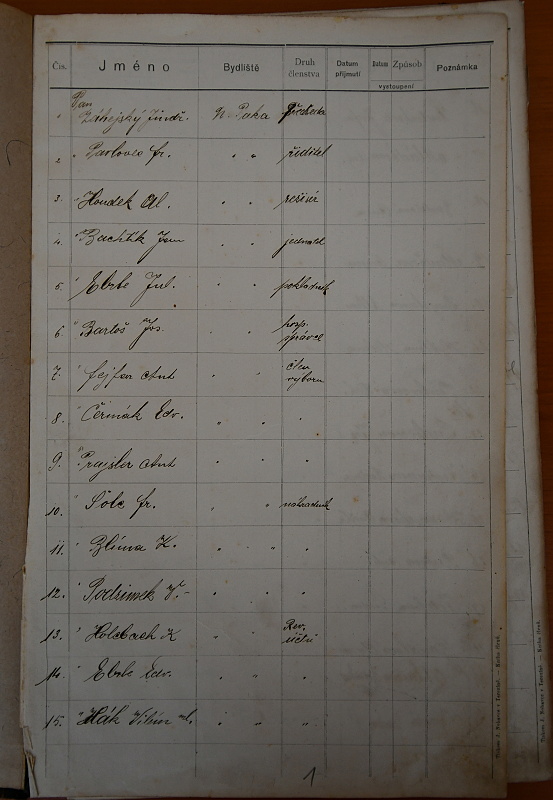 Čís. Jméno Bydliště Druh členstva Datum přijmutí Datum Způsob vystoupení Poznámka
1. Pan Jindř. N. Paka předseda
2. " Pavlovec fr. " " ředitel
3. " Houdek Al. " " režisér
4. " Bachtík Jan " " jednatel
5. " Jul. " " pokladník
6. " Bartoš Jos. " " hosp. správce
7. " fejfar Ant " " člen výboru
8. " Čermák Edv. " " "
9. " Prajsler Ant " " "
10. " Šolc fr. " " náhradník
11. " Blíma K. " " "
12. " V. " " "
13. " Holcbach K " " Rev. účtů
14. " Edv. " " "
15. " Hák Vilém ml. " " "
1